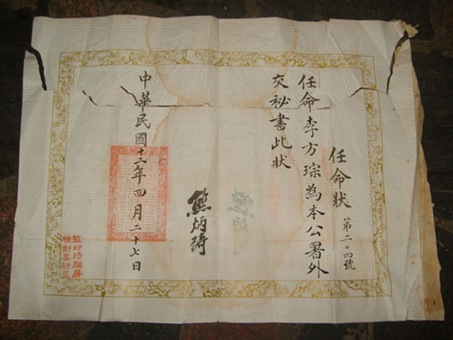 任命狀
第二〇四號
任命李方琮為本公署外
交秘書此狀
熊炳琦
中華民國十二年四月二十七日